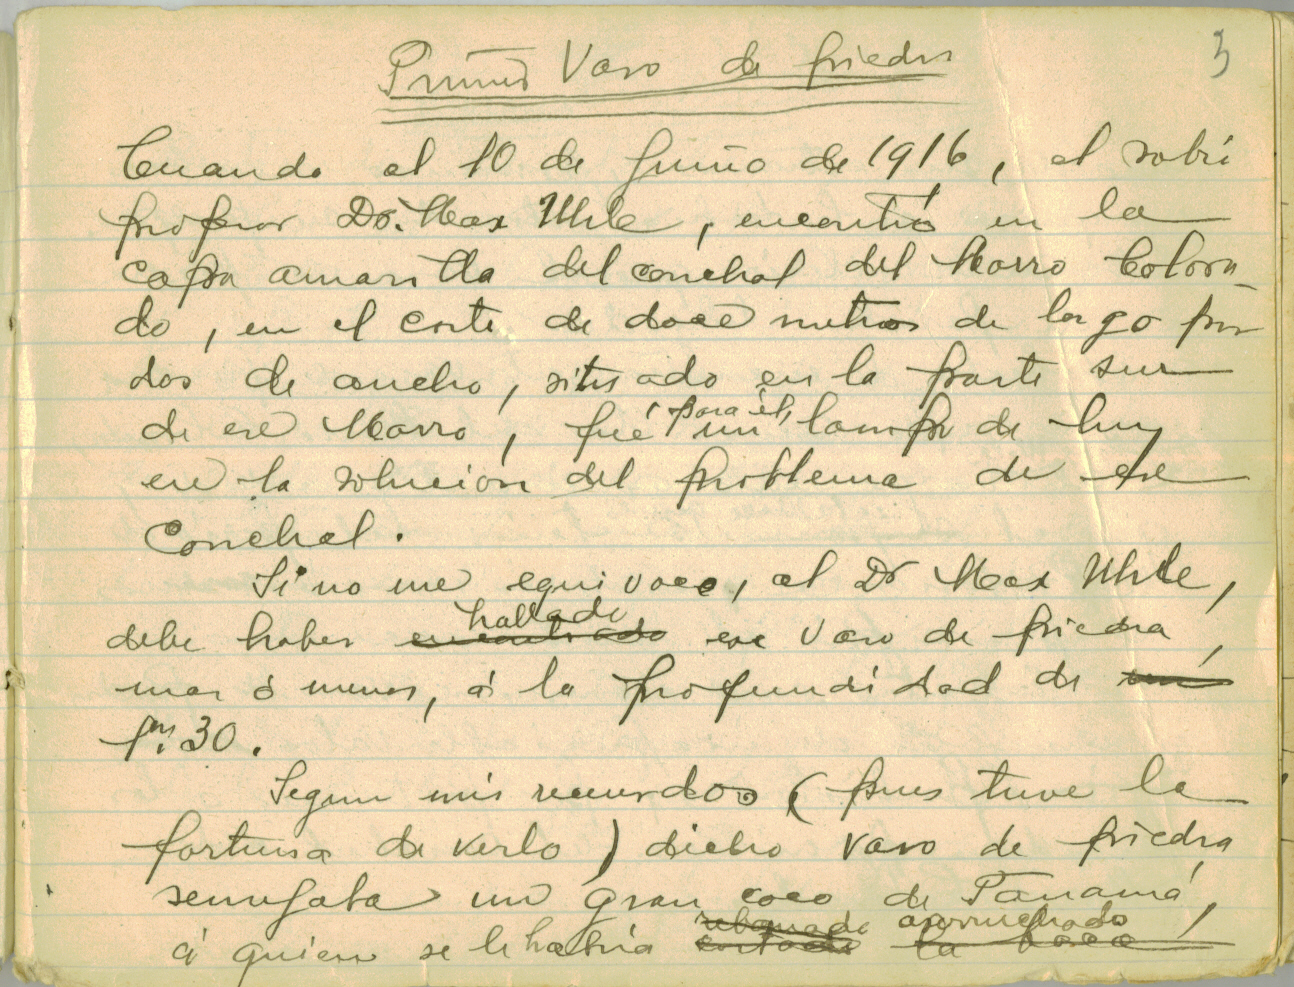 3
Primer Vaso de piedra
Cuando el 10 de Junio de 1916, el sabio
profesor Dr. Max Uhle, encontró en la
capa amarilla del conchal del Morro Colora
do, en el corte de doce metros de largo por
dos de ancho, situado en la parte sur
de ese Morro, fué para él, un lampo de luz
en la solución del problema de ese
Conchal.
Si no me equivoco, el Dr Max Uhle,
debe haber encontrado hallado ese vaso de piedra,
mas ó menos, á la profundidad de un
1m. 30.
Segun mis recuerdos (pues tuve la
fortuna de verlo) dicho vaso de piedra
semejaba un gran coco de Panamá,
á quien se le habria cortado rebanado la boca